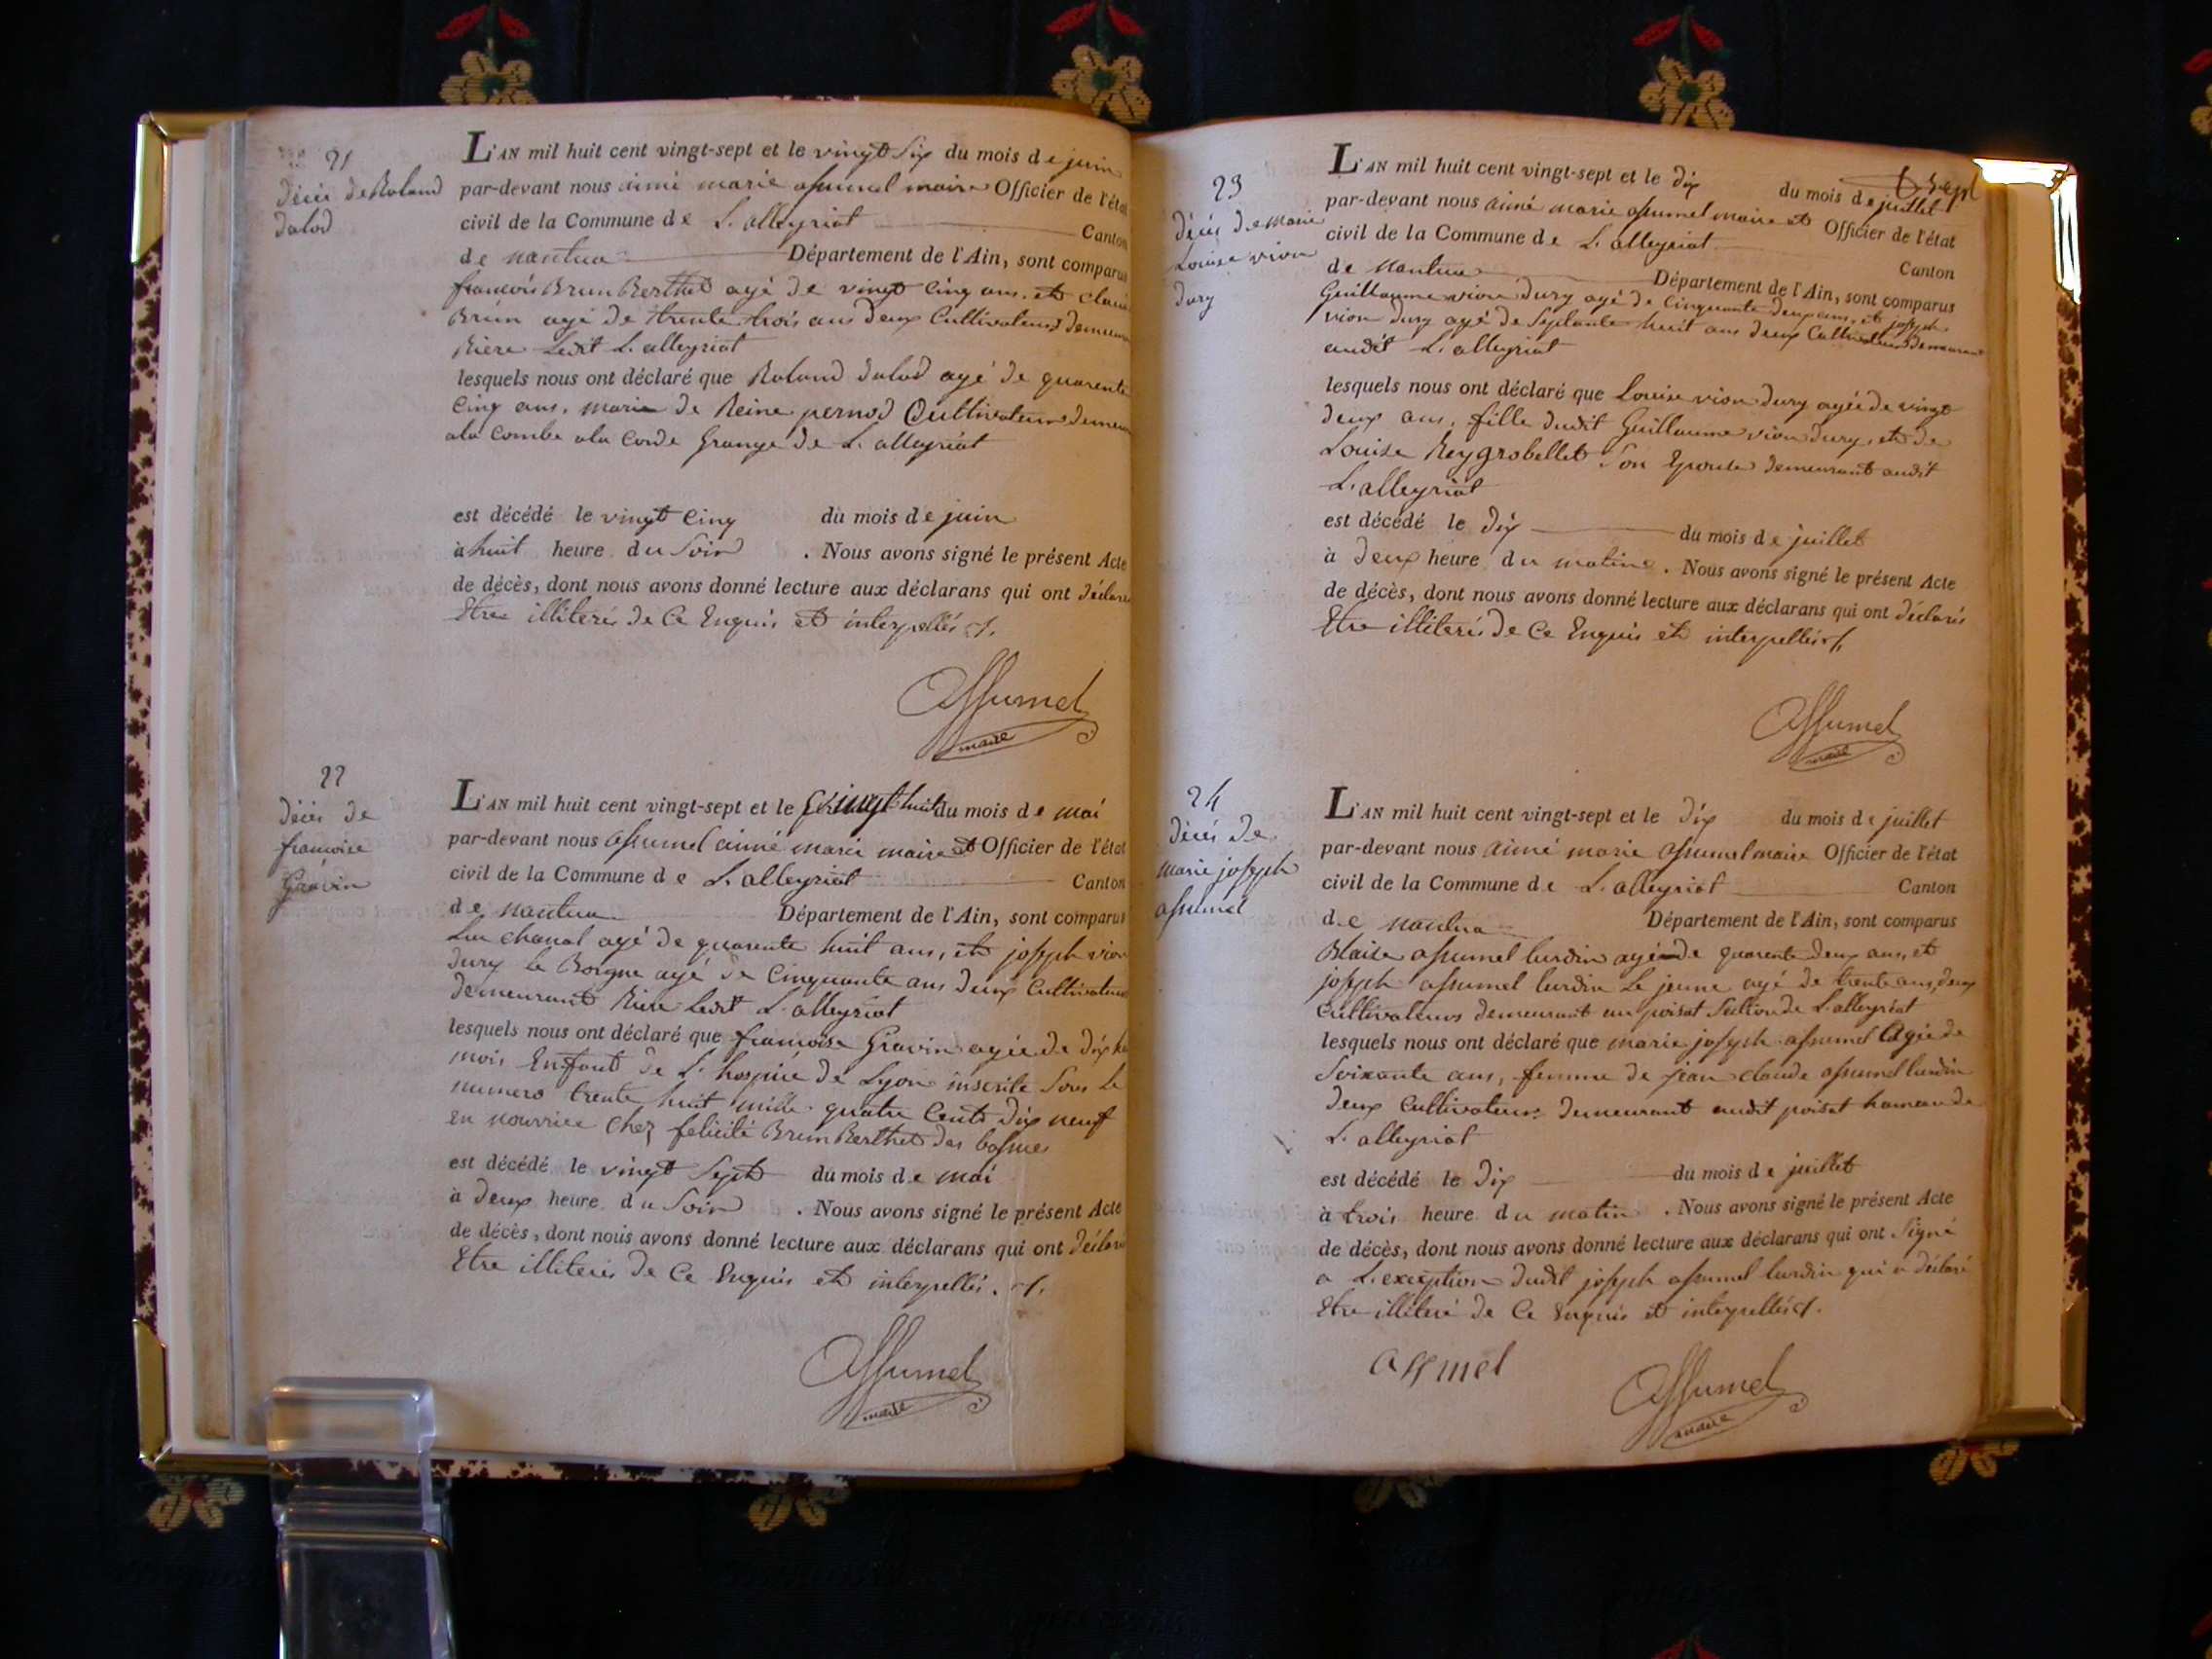 21
décès de Roland
dalod
L'AN mil huit cent vingt-sept et le vingt Six du mois de juin
par-devant nous aimé marie assumel maire Officier de l'état
civil de la Commune de L'alleyriat Canton
de nantua Département de l'Ain, sont comparus
francois Brun Berthet agé de vingt Cinq ans, et
Brun agé de trente trois ans deux Cultivateurs
Rière Ledit L'alleyriat
lesquels nous ont déclaré que Roland dalod agé de quarente
Cinq ans, marie de Reine pernod Cultivateur
ala Combe ala Corde Grange de L'alleyriat
est décédé le vingt Cinq du mois de juin
à huit heure du Soir . Nous avons signé le présent Acte
de décès, dont nous avons donné lecture aux déclarans qui ont
Etre illiterés de Ce Enquis et interpellés ./.
Assumel
maire
22
décès de
francoise
Gravin
L'AN mil huit cent vingt-sept et le vingt huit du mois de mai
par-devant nous assumel aimé marie maire et Officier de l'état
civil de la Commune de L'alleyriat Canton
de nantua Département de l'Ain, sont comparus
Luc chanal agé de quarente huit ans, et joseph vion
dury le Borgne agé de Cinquante ans deux Cultivateurs
demeurant Rière Ledit L'alleyriat
lesquels nous ont déclaré que francoise Gravin agée de dix
mois Enfant de L'hospice de Lyon inscrite Sous Le
numero trente huit mille quatre Cents dix neuf
en nourrice Chez felicité Brun Berthet des
est décédé le vingt Sept du mois de mai
à deux heure du Soir . Nous avons signé le présent Acte
de décès, dont nous avons donné lecture aux déclarans qui ont
Etre illiterés de Ce Enquis et interpellés. ./.
Assumel
maire
23
décès de marie
Louise vion
dury
L'AN mil huit cent vingt-sept et le dix du mois de juillet
par-devant nous aimé marie assumel maire et Officier de l'état
civil de la Commune de L'alleyriat Canton
de Nantua Département de l'Ain, sont comparus
Guillaume vion dury agé de Cinquante deux ans, et joseph
vion dury agé de Septante huit ans deux Cultivateurs demeurant
audit L'alleyriat
lesquels nous ont déclaré que Louise vion dury agée de vingt
deux ans, fille dudit Guillaume vion dury, et de
Louise Reygrobellet Son Epouse demeurant audit
L'alleyriat
est décédé le dix du mois de juillet
à deux heure du matin . Nous avons signé le présent Acte
de décès, dont nous avons donné lecture aux déclarans qui ont déclarés
Etre illiterés de Ce Enquis et interpellés ./.
Assumel
maire
24
décès de
marie joseph
assumel
L'AN mil huit cent vingt-sept et le dix du mois de juillet
par-devant nous aimé marie assumel maire Officier de l'état
civil de la Commune de L'alleyriat Canton
de nantua Département de l'Ain, sont comparus
Blaise assumel lurdin agé de quarente deux ans, et
joseph assumel lurdin Le jeune agé de trente ans, deux
Cultivateurs demeurant au poisat Section de L'alleyriat
lesquels nous ont déclaré que marie joseph assumel Agée de
Soixante ans, femme de jean claude assumel lurdin
deux Cultivateurs demeurant audit poisat hameau de
L'alleyriat
est décédé le dix du mois de juillet
à trois heure du matin . Nous avons signé le présent Acte
de décès, dont nous avons donné lecture aux déclarans qui ont Signé
a L'exception dudit joseph assumel lurdin qui a déclaré
Etre illiteré de Ce Enquis et interpellés ./.
assmel
Assumel
maire